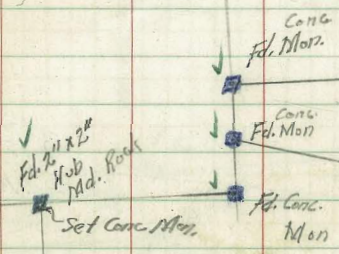 Conc
Fd. Mon.
Conc.
Fd. Mon
Fd. 2" x 2"
Hub
Md. Rock
Set Conc Mon.
Fd. Conc.
Mon